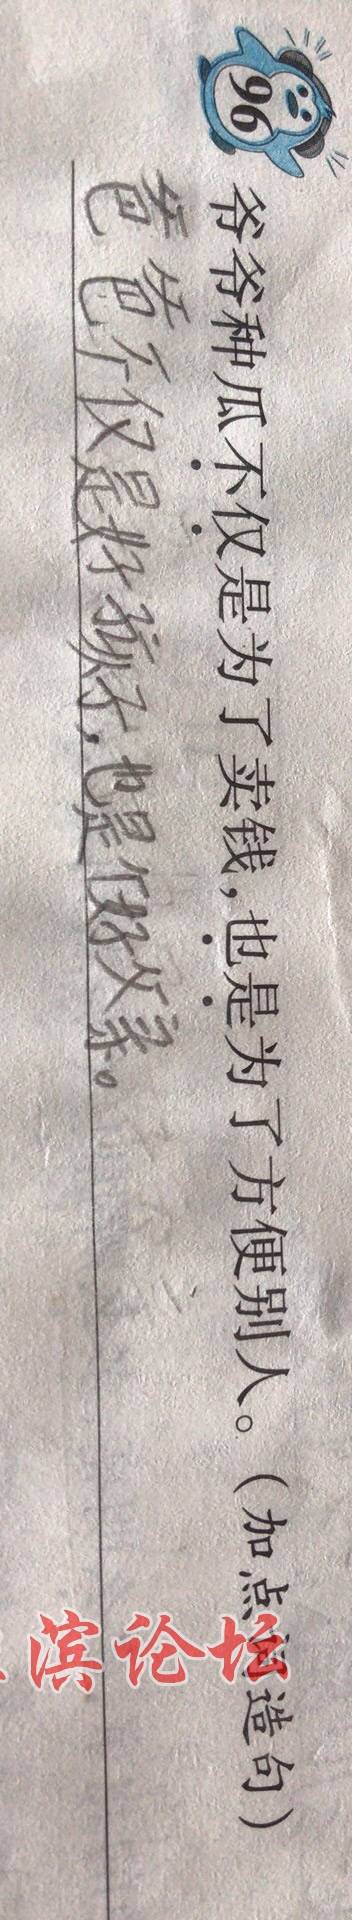 96
爷爷种瓜不仅是为了卖钱,也是为了方便别人。(加点词造句)
爸爸不仅是好孩子,也是个好父亲。
滨论坛